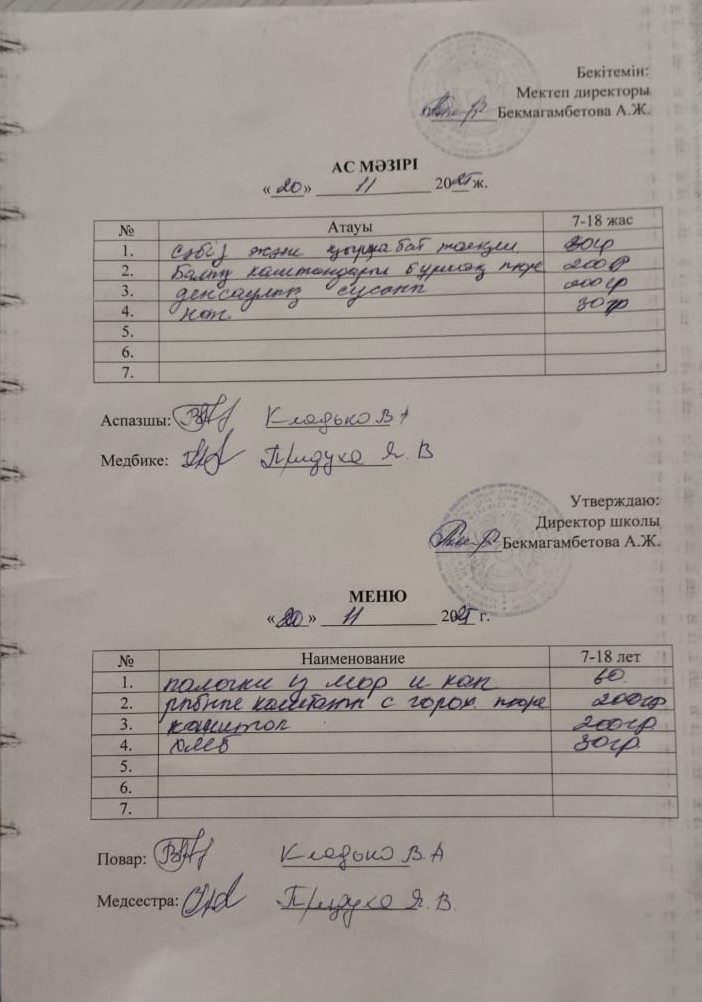 Бекітемін:
Мектеп директоры
Бекмагамбетова А.Ж.
АС МӘЗІРІ
«20» 11 2025 ж.
№ Атауы 7-18 жас
1. сәбіз және қырққабат таяқшалары
2. Балық каштандары бұршақ пюре 200гр
3. денсаулық сусыны 200гр
4. нан 30гр
5.
6.
7.
Аспазшы: Кладько В А
Медбике: Придуха Я. В
Утверждаю:
Директор школы
Бекмагамбетова А.Ж.
МЕНЮ
«20» 11 2025 г.
№ Наименование 7-18 лет
1. палочки из мор и кап 60
2. рыбные каштаны с горох пюре 200гр
3. 200гр
4. хлеб 30гр
5.
6.
7.
Повар: Кладько В А
Медсестра: Придуха Я. В.